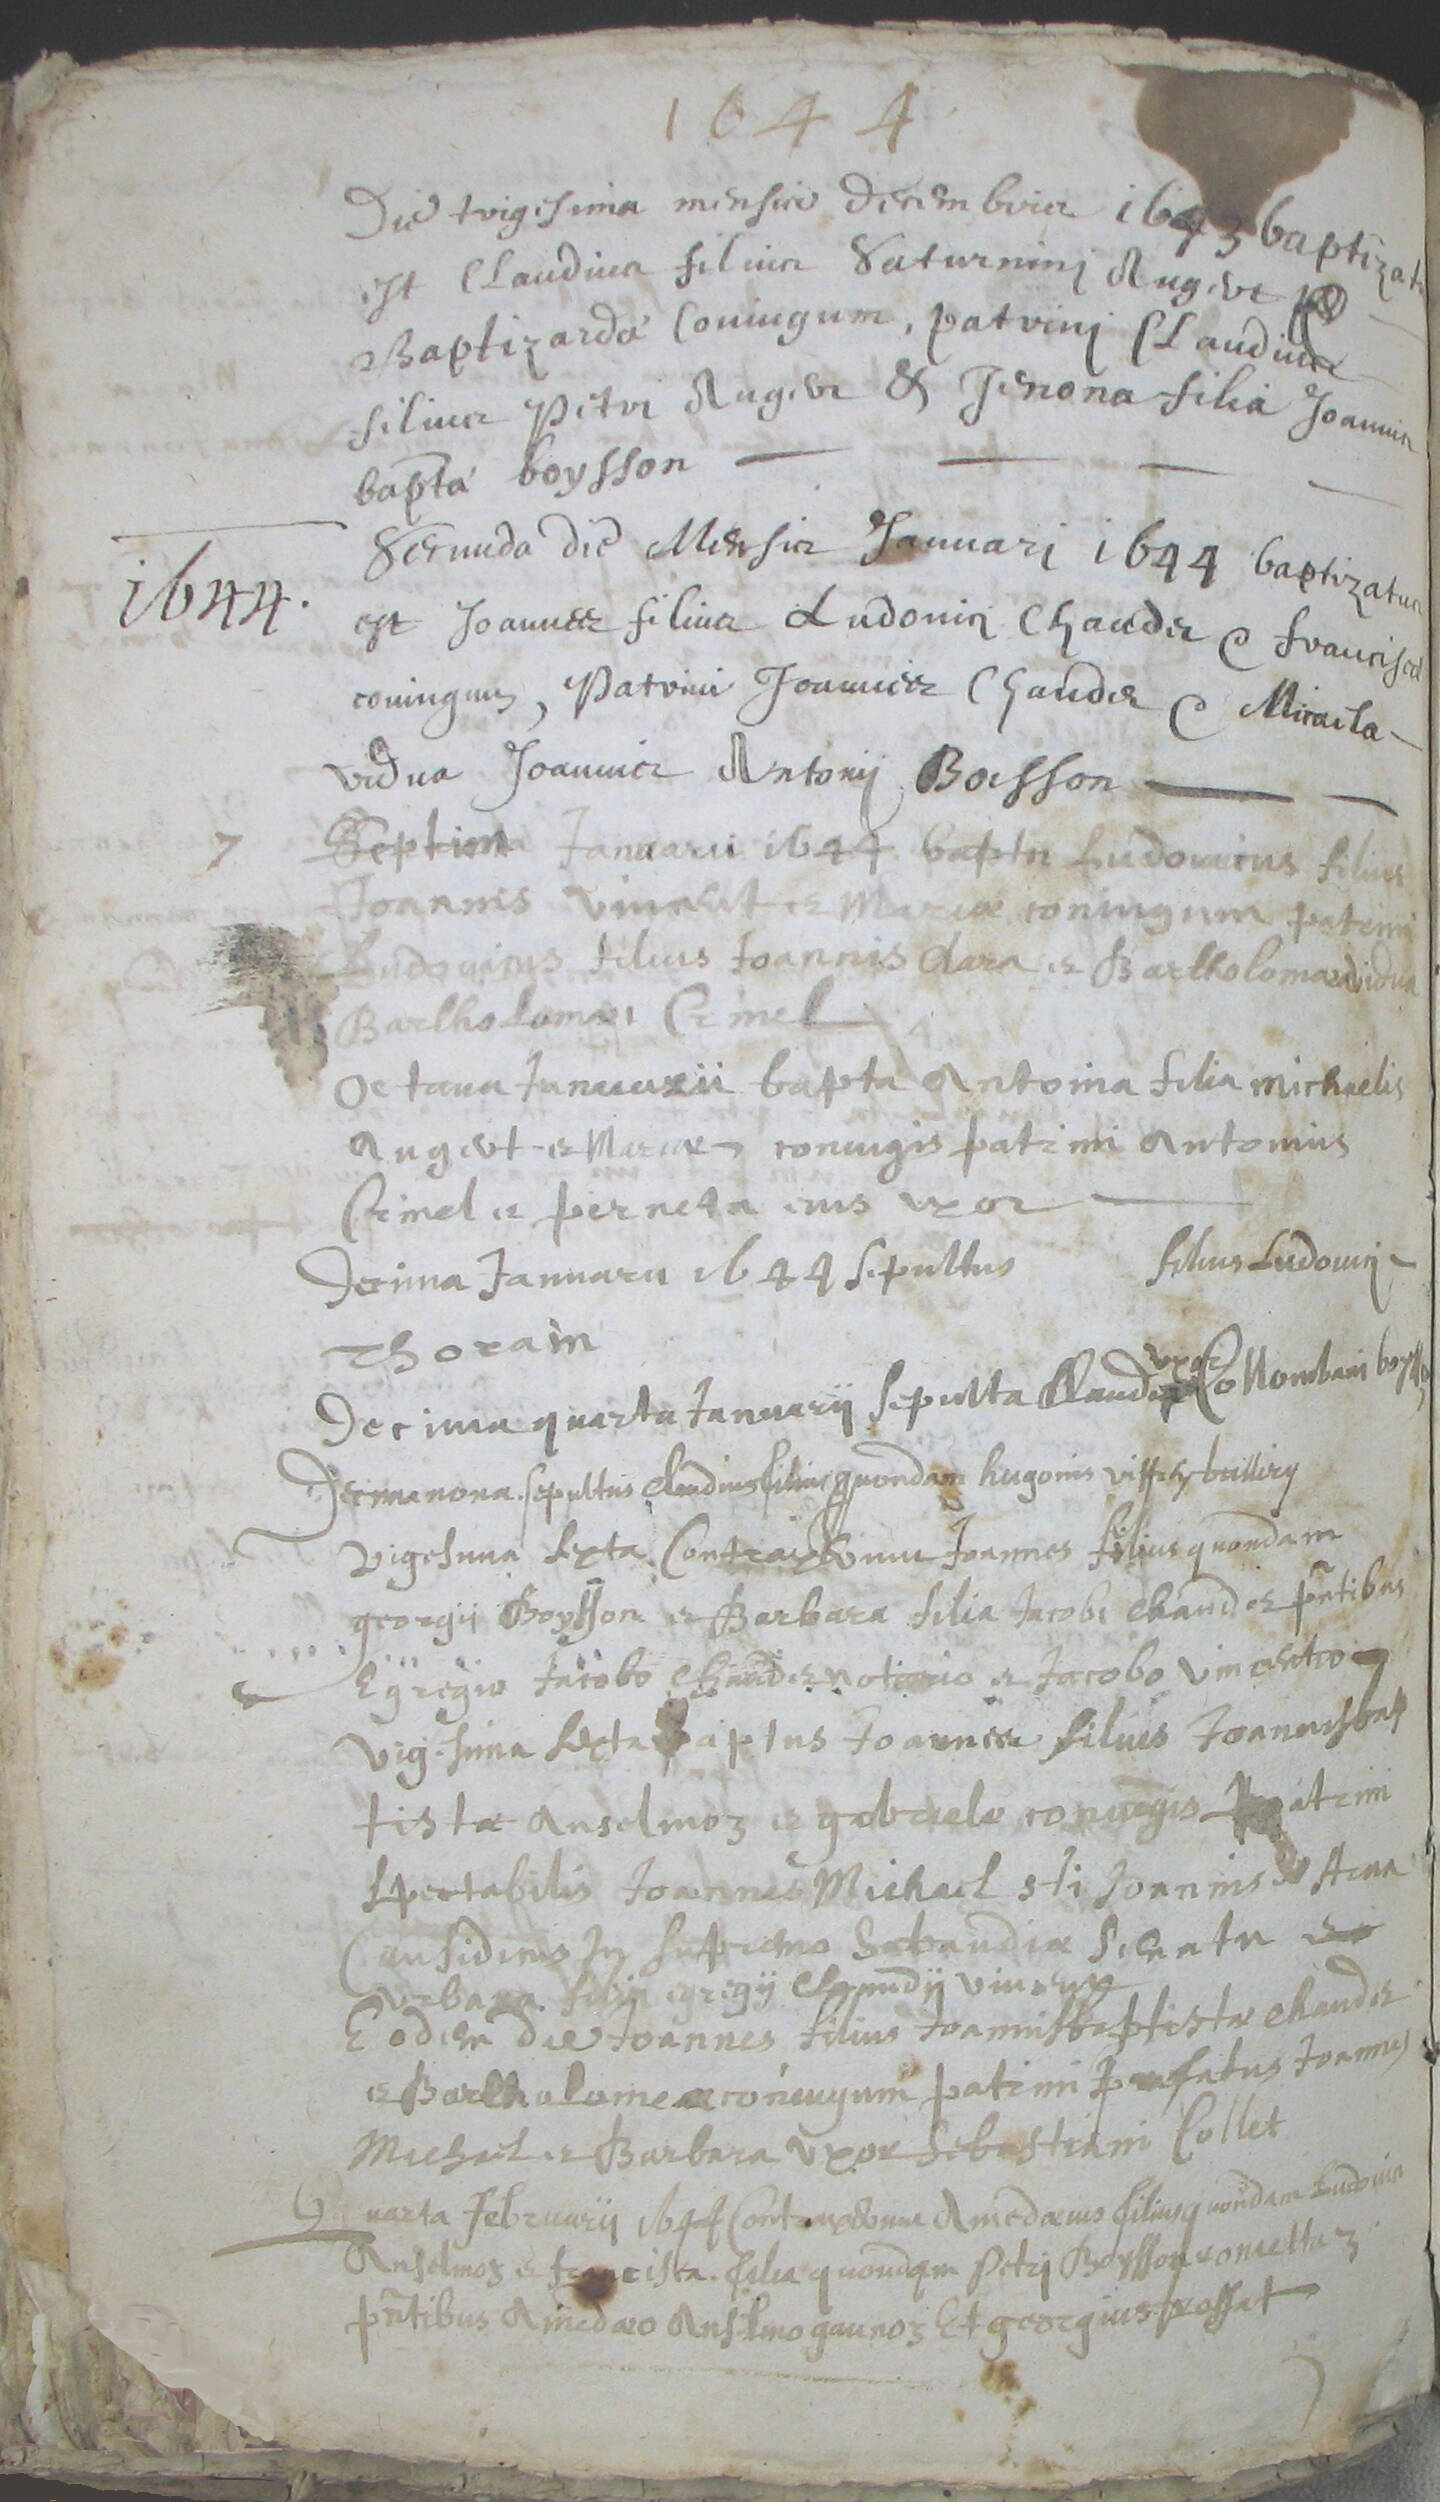 1644
Die trigesima mensis decembris 1643 baptizatus
est Claudius filius Saturninj Augert &
Baptizardæ Coniugum, patrinj Claudius
filius Petri Augert & Jenona filia Joannis
bapta boysson
1644.
Secunda die Mensis Januarj 1644 baptizatus
est Joannes filius Ludovici Chaudet & francisca
coniugum, Patrini Joannes Chaudet &
vidua Joannis Antonij Boesson
7
Septima Januarii 1644 baptus Ludovicus filius
Joannis Vincent et Mariæ coniugum patrini
Ludovicus filius Joannis Clara et Bartholomæa vidua
Bartholomæi Crimel
Octava Januarii bapta Antoina filia michaelis
Augert et Mariæ coniugis patrini Antonius
Crimel et perneta eius uxor
Decima Januarii 1644 sepultus filius Ludovicj
Thorain
uxor
Decima quarta Januarij sepulta Claudia Collombani boysson
Decimanona sepultus Claudius filius quondam hugonis
Vigesima sexta Contraxerunt Joannes filius quondam
georgij Boysson et Barbara filia Jacobi chaudet pntibus
Egregio Jacobo chaudet notario et Jacobo vincentio
Vigesima sexta baptus Joannes filius Joannisbap
tistæ Anselmoz et gabrielæ coniugis patrini
Spectabilis Joannes Michael sti Joannis
Causidicus In supremo Sabaudiæ Senatu et
urbana filia egregij Claudij vincent
Eodem die Joannes filius Joannisbaptistæ chaudet
et Bartholomeæ coniugum patrini præfatus Joannes
Michael et Barbara Uxor Sebastiani Collet
Quarta Februarij 1644 Contraxerunt Amedæus filius quondam Ludovici
Anselmoz et francisca filia quondam Petrj Boysson
pntibus Amedæo Anselmo gaunoz Et georgius frossat